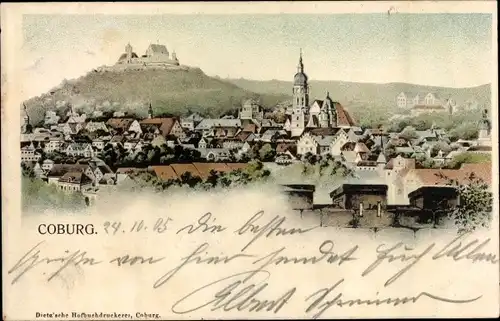 COBURG. 24.10.05 Die besten
Grüsse von hier sendet Euch Allen
Albert
Dietz'sche Hofbuchdruckerei, Coburg.